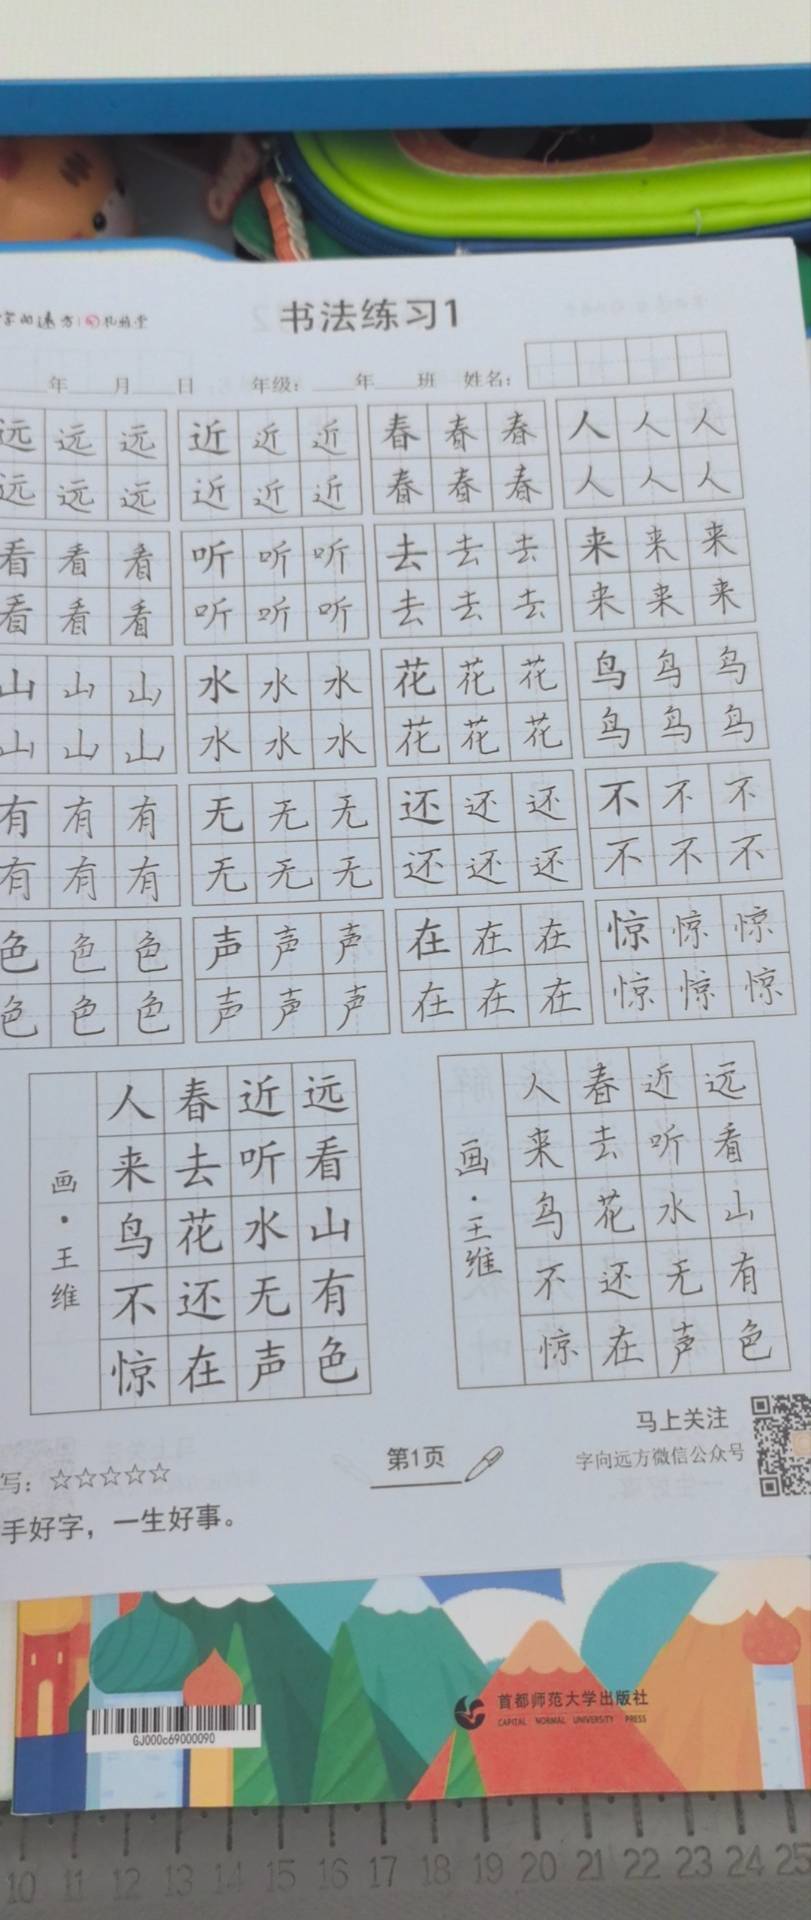 书法练习1
年 月 日 年级： 年 班 姓名：
远 远 远 近 近 近 春 春 春 人 人 人
远 远 远 近 近 近 春 春 春 人 人 人
看 看 看 听 听 听 去 去 去 来 来 来
看 看 看 听 听 听 去 去 去 来 来 来
山 山 山 水 水 水 花 花 花 鸟 鸟 鸟
山 山 山 水 水 水 花 花 花 鸟 鸟 鸟
有 有 有 无 无 无 还 还 还 不 不 不
有 有 有 无 无 无 还 还 还 不 不 不
色 色 色 声 声 声 在 在 在 惊 惊 惊
色 色 色 声 声 声 在 在 在 惊 惊 惊
画·王维
人 春 近 远
来 去 听 看
鸟 花 水 山
不 还 无 有
惊 在 声 色
画·王维
人 春 近 远
来 去 听 看
鸟 花 水 山
不 还 无 有
惊 在 声 色
写：☆☆☆☆☆
手好字，一生好事。
第1页
马上关注
字向远方微信公众号
GJ000c69000090
首都师范大学出版社
CAPITAL NORMAL UNIVERSITY PRESS
10 11 12 13 14 15 16 17 18 19 20 21 22 23 24 25